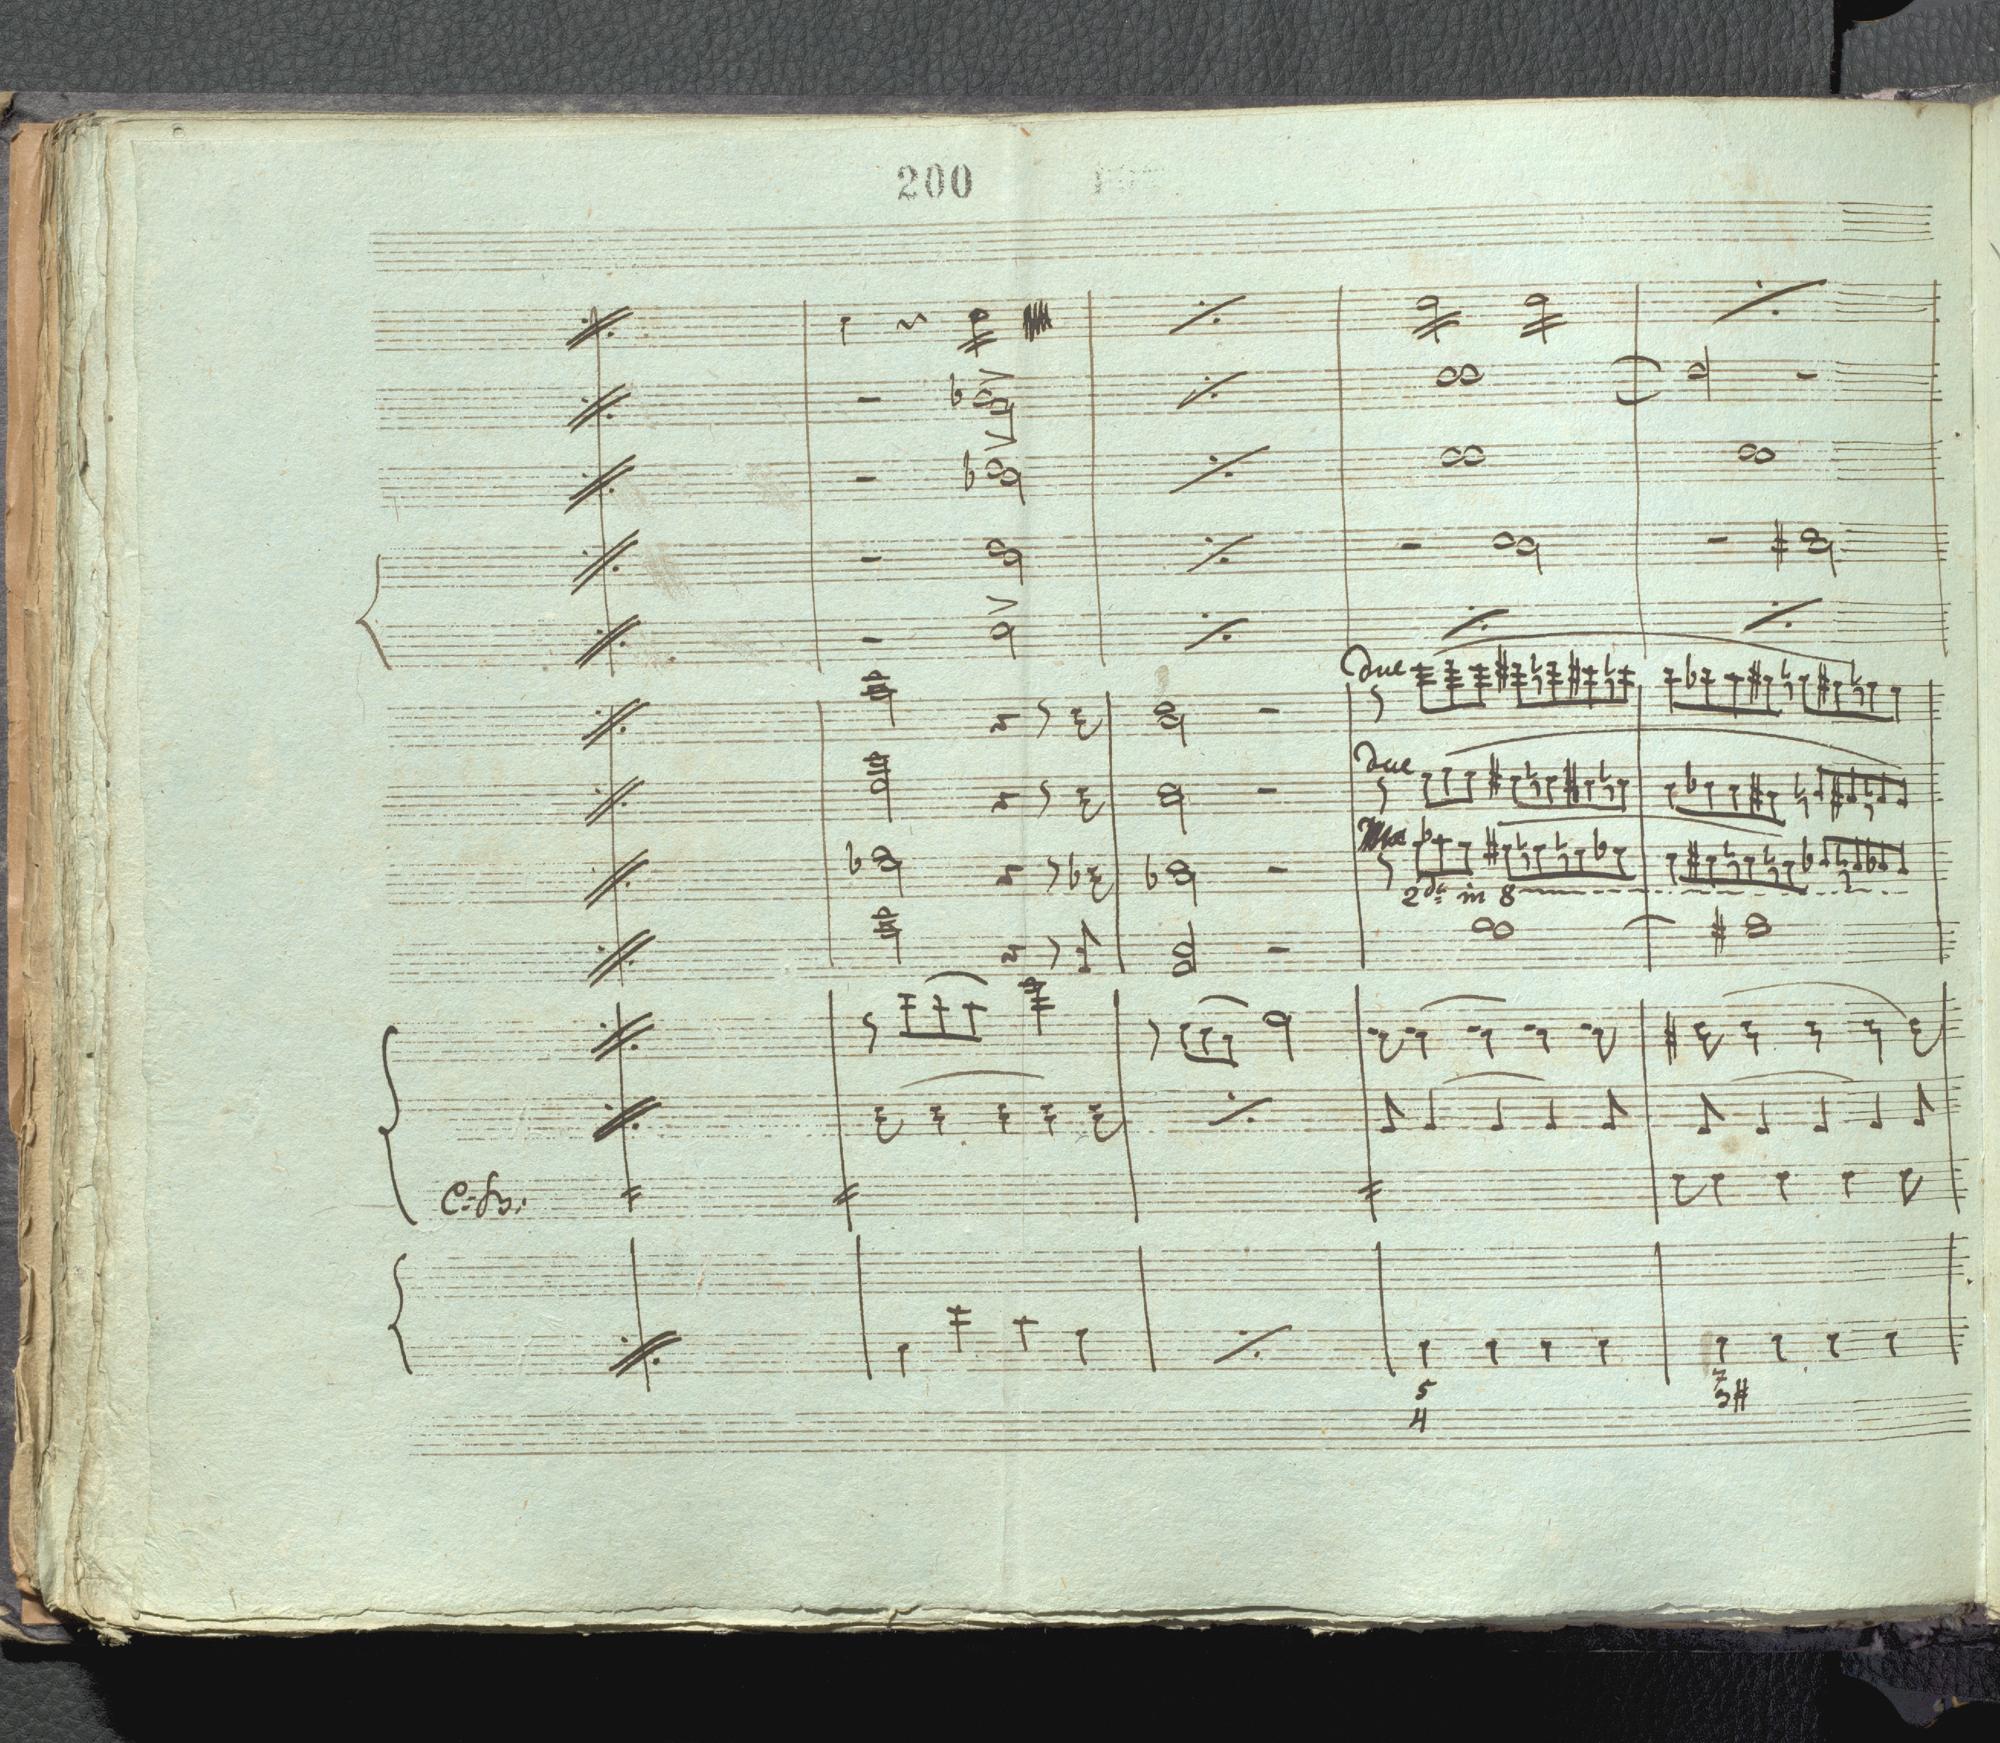 200
due
due
2da in 8
C. B.
5
4
7
3#